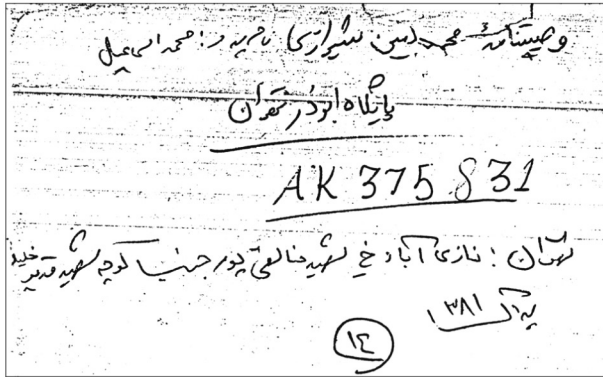 وصیتنامهٔ محمد امین شیرازی نام پدر: محمد اسماعیل
پایگاه ابوذر تهران
AK 375 831
تهران: نازی آباد خ شهید خالقی پور جنب کوچه شهید قدیر
پلاک ۱۳۸۱
۱۴